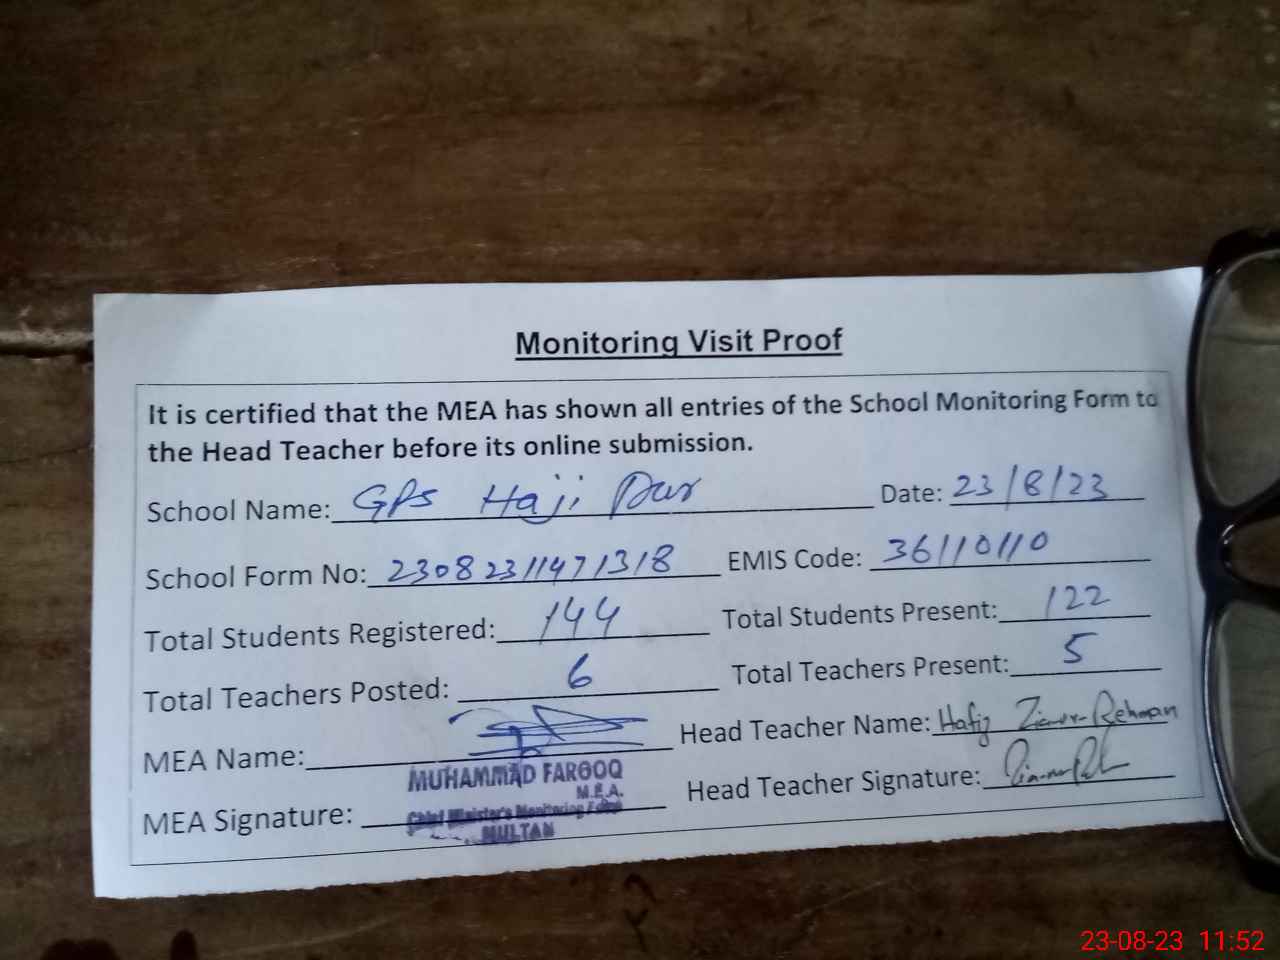 Monitoring Visit Proof
It is certified that the MEA has shown all entries of the School Monitoring Form to
the Head Teacher before its online submission.
School Name: GPS Haji Date: 23/8/23
School Form No: 23082311471318 EMIS Code: 36110110
Total Students Registered: 144 Total Students Present: 122
Total Teachers Posted: 6 Total Teachers Present: 5
MEA Name: Head Teacher Name: Hafiz Zia-ur-Rehman
MUHAMMAD FAROOQ
M.E.A.
MEA Signature: Head Teacher Signature:
Chief Minister's Monitoring Force
MULTAN
23-08-23 11:52